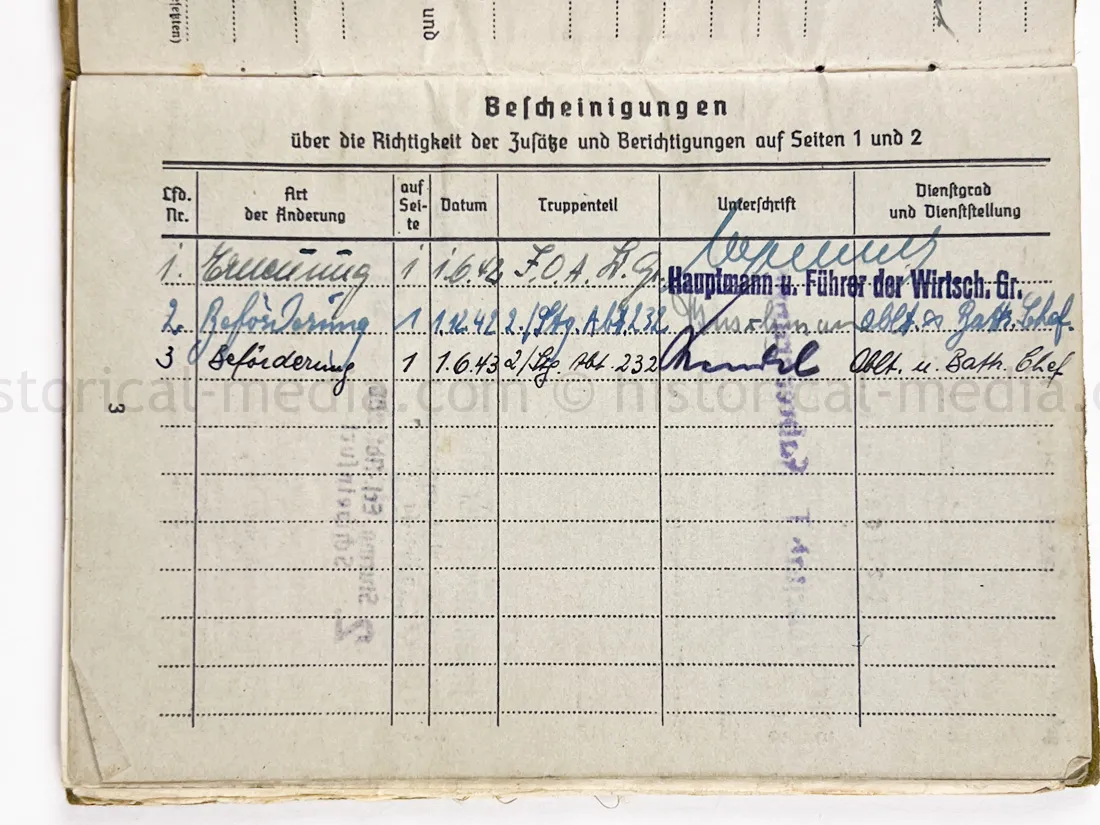 und
Bescheinigungen
über die Richtigkeit der Zusätze und Berichtigungen auf Seiten 1 und 2
Lfd. Nr. Art der Änderung auf Sei-te Datum Truppenteil Unterschrift Dienstgrad und Dienststellung
1. Ernennung 1 1.6.42 F.O.A.
Hauptmann u. Führer der Wirtsch. Gr.
2. Beförderung 1 1.12.42 2./Stg. Abt 232 Oblt. u. Battr. Chef.
3 Beförderung 1 1.6.43 2/Stg. Abt. 232 Oblt. u. Battr. Chef
historical-media.com © historical-media.c
3